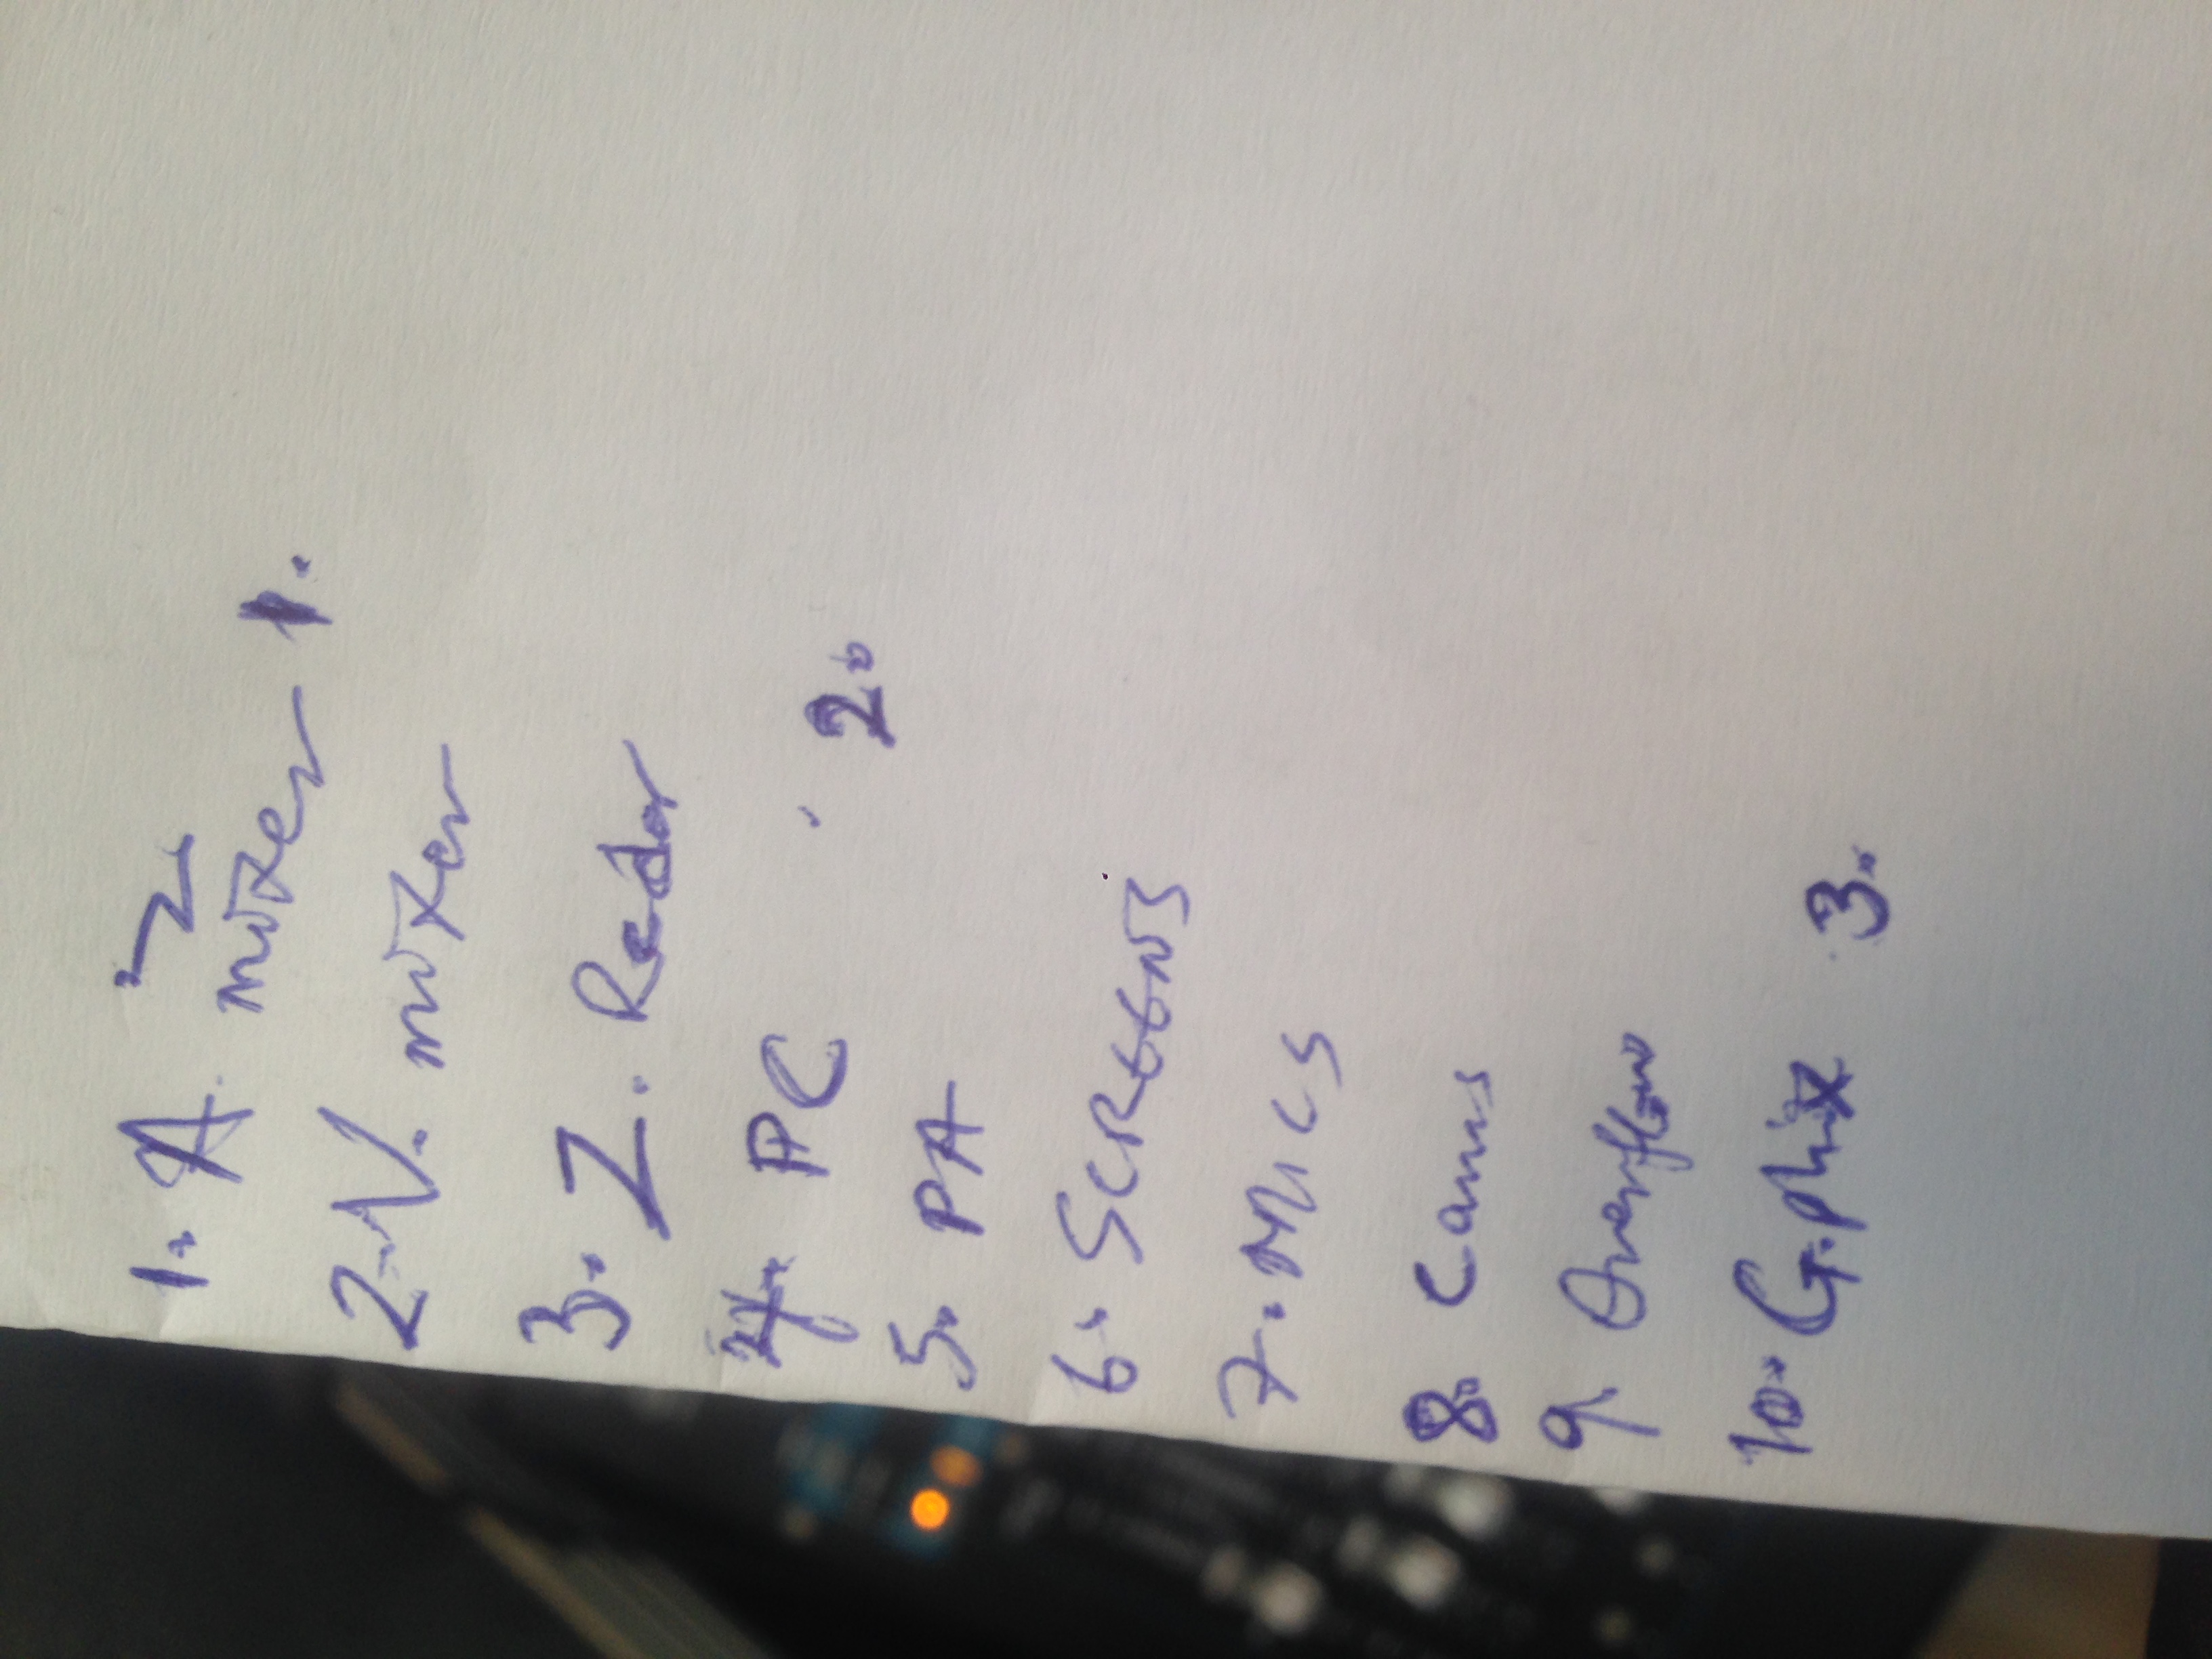 1. A. mixer 1.
2. V. mixer
3. Z. Redor
4. PC 2.
5. PA
6. SCREENS
7. MICS
8. Cams
9. Overflow
10. G.phix 3.